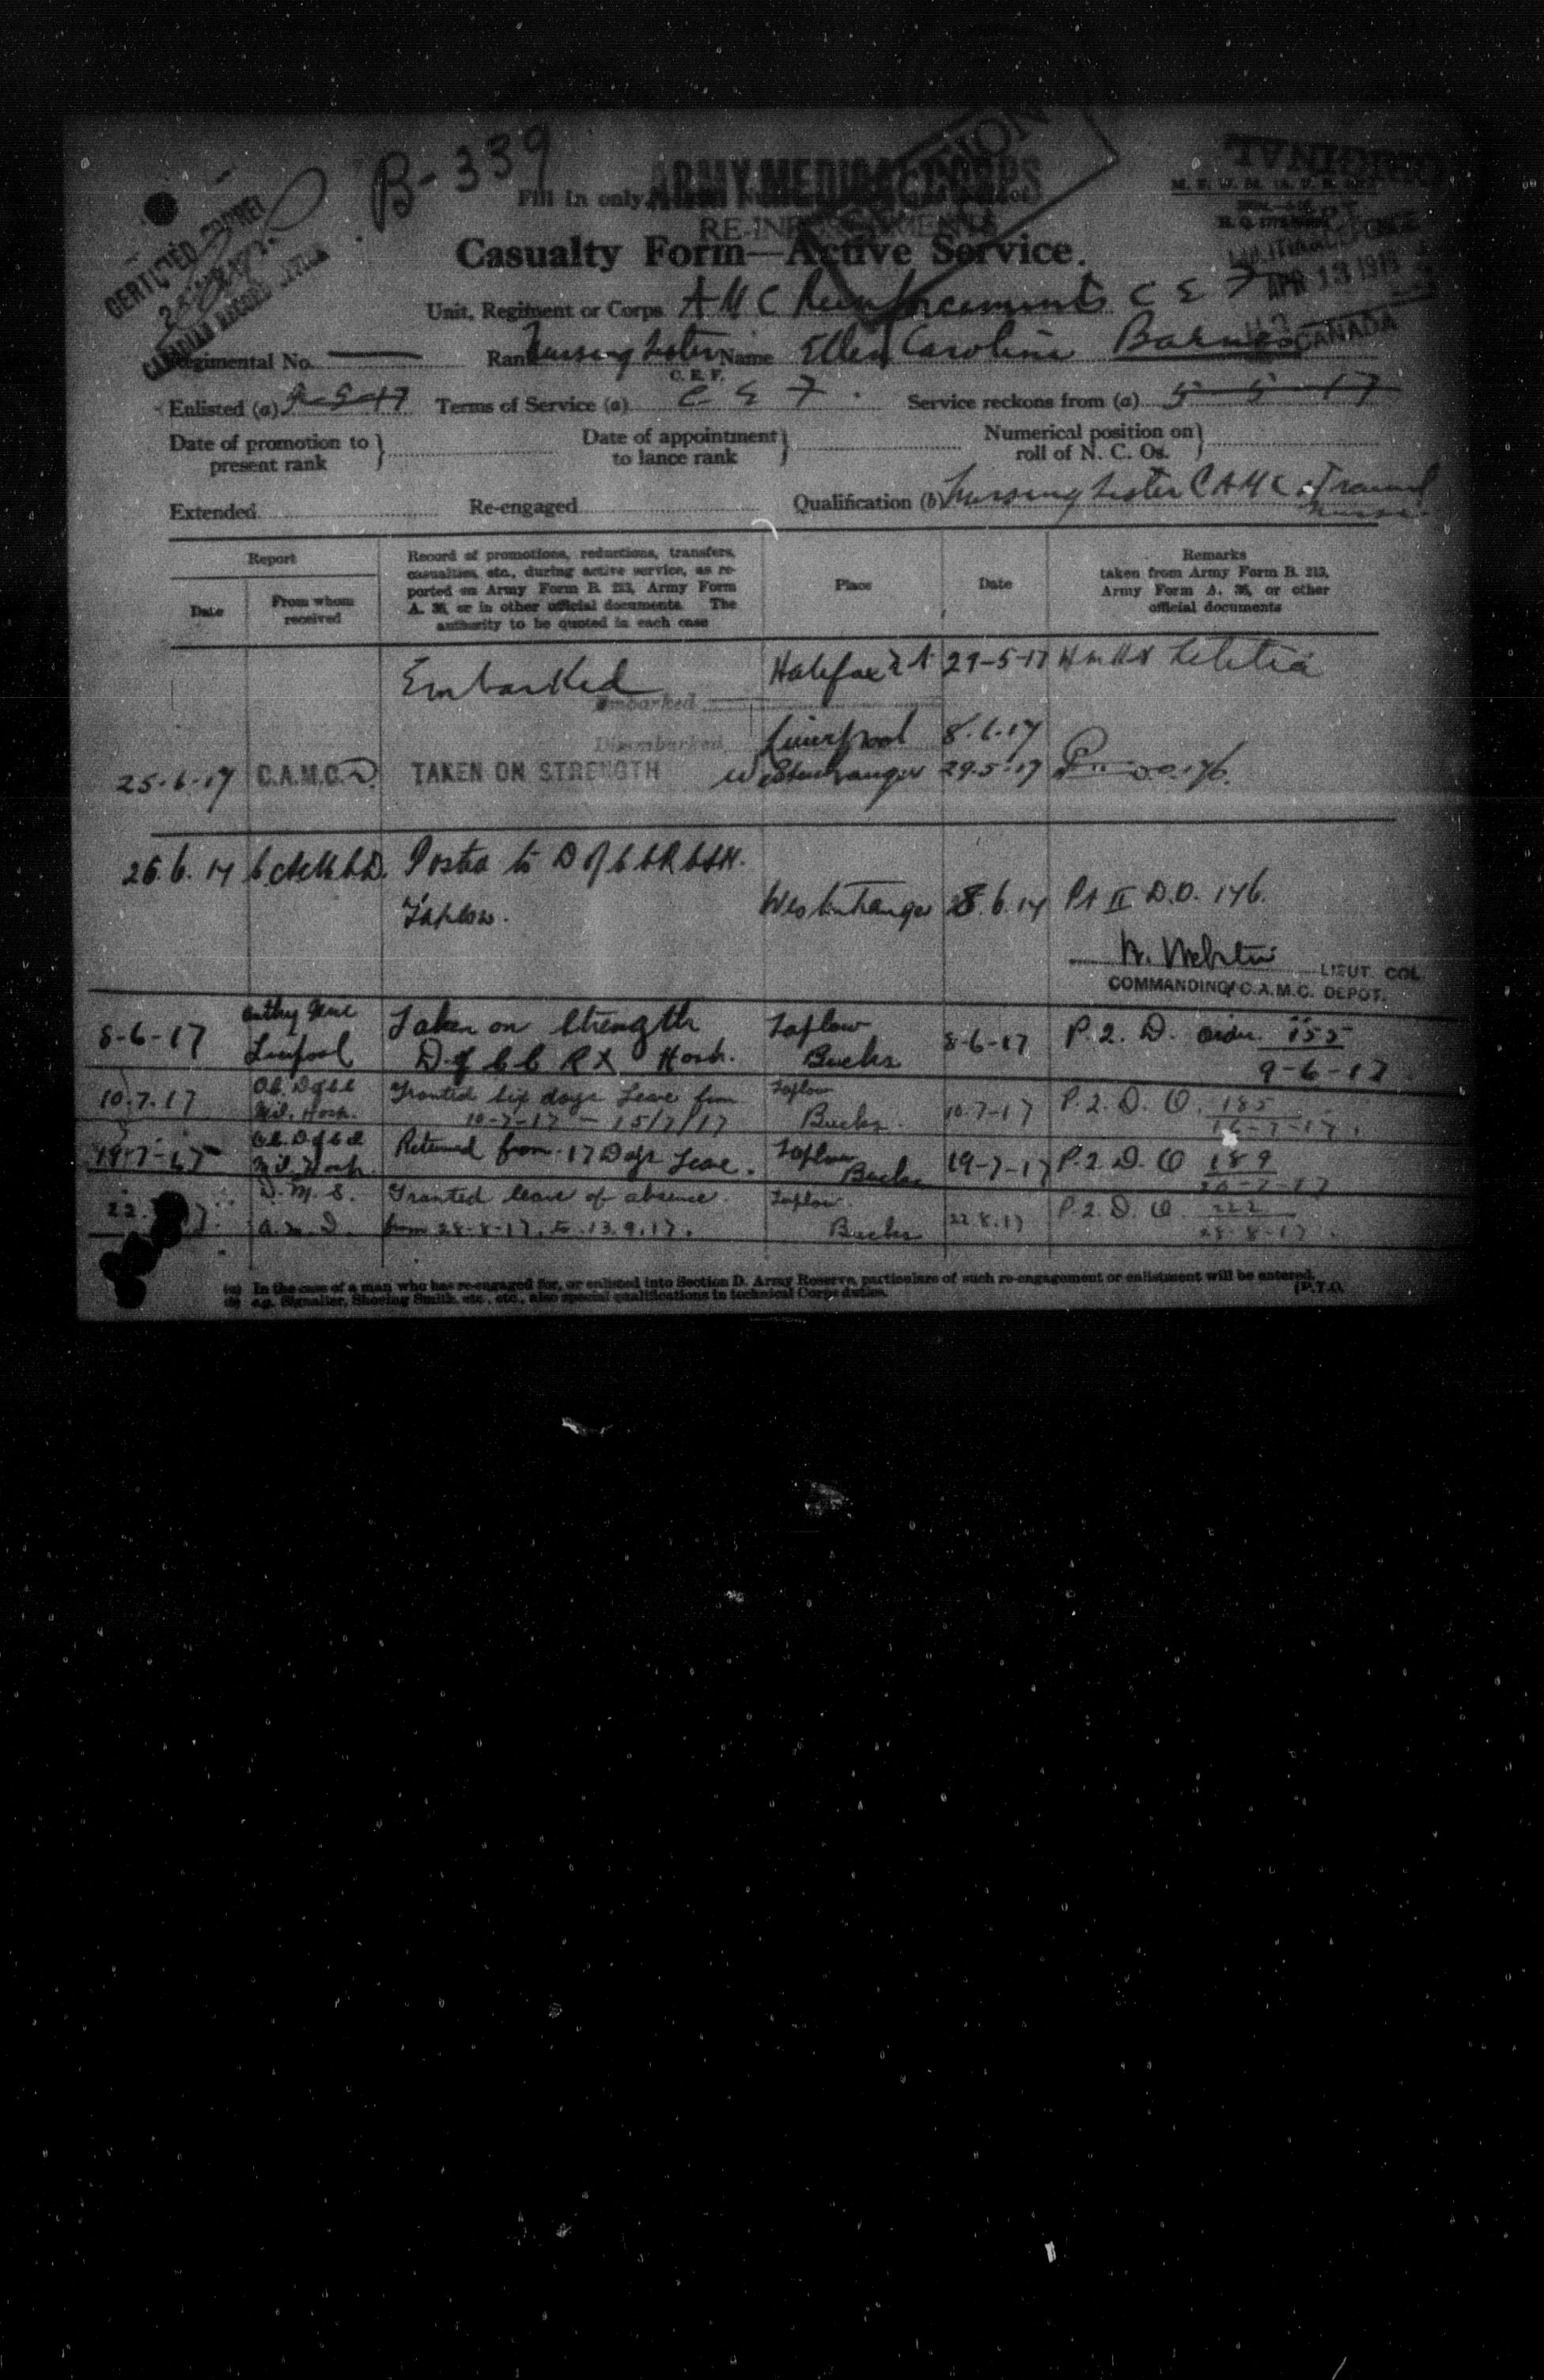 B-339
ARMY MEDICAL CORPS
Fill in only
RE-INFORCEMENTS
ORIGINAL
CERTIFIED CORRECT
CANADIAN RECORD
APR 13 1919
CANADA
Casualty Form—Active Service.
Unit, Regiment or Corps A M C Reinforcements C E F
Regimental No. — Rank Nursing Sister Name Ellen Caroline Barnes
C. E. F.
Enlisted (a) 5-17 Terms of Service (a) C E F. Service reckons from (a) 5-5-17
Date of promotion to present rank } Date of appointment to lance rank } Numerical position on roll of N. C. Os. }
Extended Re-engaged Qualification (b) Nursing Sister C A M C. Trained Nurse.
Report
Date
From whom received
Record of promotions, reductions, transfers, casualties, etc., during active service, as reported on Army Form B. 213, Army Form A. 36, or in other official documents. The authority to be quoted in each case
Place
Date
Remarks
taken from Army Form B. 213, Army Form A. 36, or other official documents
Embarked Halifax 29-5-17 Letitia
Embarked
Disembarked Liverpool 8.6.17
25-6-17 C.A.M.C.D. TAKEN ON STRENGTH Westenhanger 29.5.17
26.6.17 C.A.M.C.D. Posted to D of C C R C S H.
Taplow. Westenhanger 8.6.17 Pt II D.O. 146.
W. Webster LIEUT. COL.
COMMANDING C.A.M.C. DEPOT.
8-6-17 Liverpool Taken on Strength D of C C R X Hosp. Taplow Bucks 8-6-17 P. 2. D. order 155
9-6-17
10.7.17 O.C. D of C C Mil. Hosp. Granted six days Leave from 10-7-17 - 15/7/17 Taplow Bucks. 10-7-17 P. 2. D. O. 185
16-7-17.
19-7-17 O.C. D of C C Mil. Hosp. Returned from 17 Days Leave. Taplow Bucks 19-7-17 P. 2. D. O 189
20-7-17
22. D. M. S. Granted leave of absence from 28-8-17. to 13.9.17. Taplow. Bucks 22.8.17 P. 2. D. O. 222
28-8-17.
(a) In the case of a man who has re-engaged for, or enlisted into Section D. Army Reserve, particulars of such re-engagement or enlistment will be entered.
(b) e.g. Signaller, Shoeing Smith, etc., etc., also special qualifications in technical Corps duties. [P.T.O.